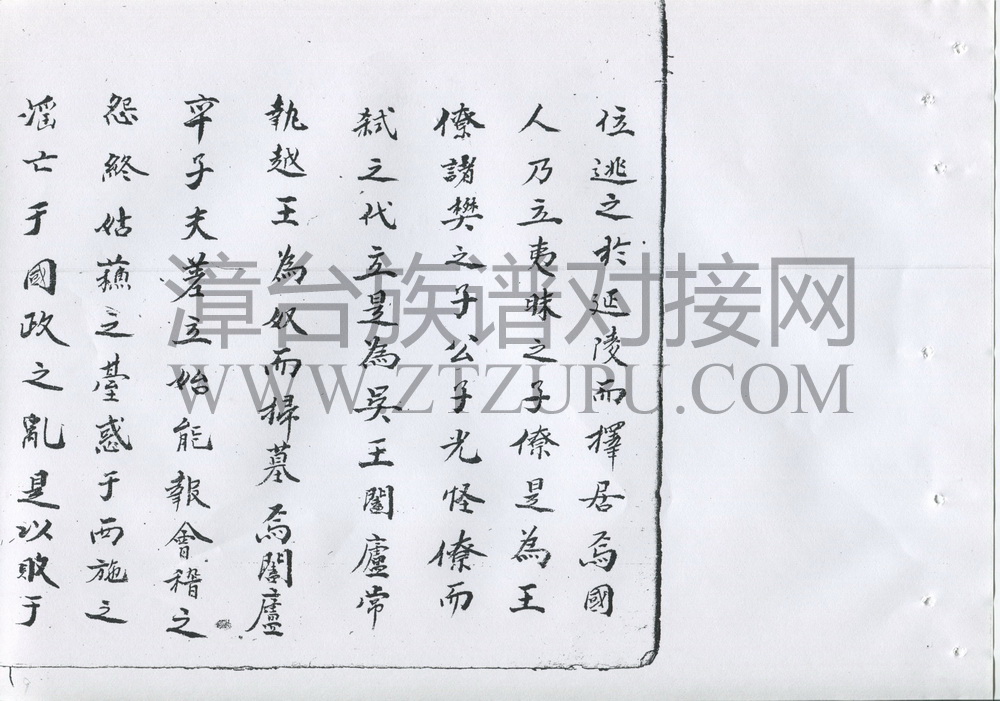 位逃之於延陵而擇居焉國
人乃立夷昧之子僚是為王
僚諸樊之子公子光怪僚而
弒之代立是為吳王闔廬常
執越王為奴而掃墓焉闔廬
卒子夫差立始能報會稽之
怨終姑蘇之臺惑于西施之
淫亡于國政之亂是以敗于
漳台族谱对接网
WWW.ZTZUPU.COM